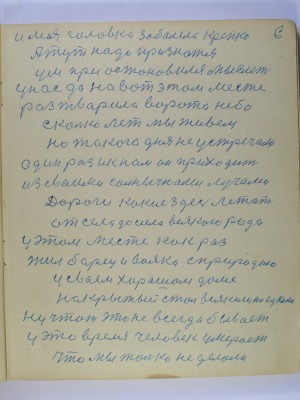 6
и моя головка заболела крепко
А тут надо признатся
ум при остоновился мыслет
у нас да на вот этом месте
разтварила ворота небо
сколко лет мы живем
но такого дня не устречали
один раз и к нам он приходит
из своими солнычными лучами
Дороги какие здес летат
от села до села всякого рода
у этом месте как раз
жил барин и вояка с природою
у своем харашом доме
накрытый стол всякими
ну что ж это не всегда бывает
у это время человек умирает
что мы толко не делали